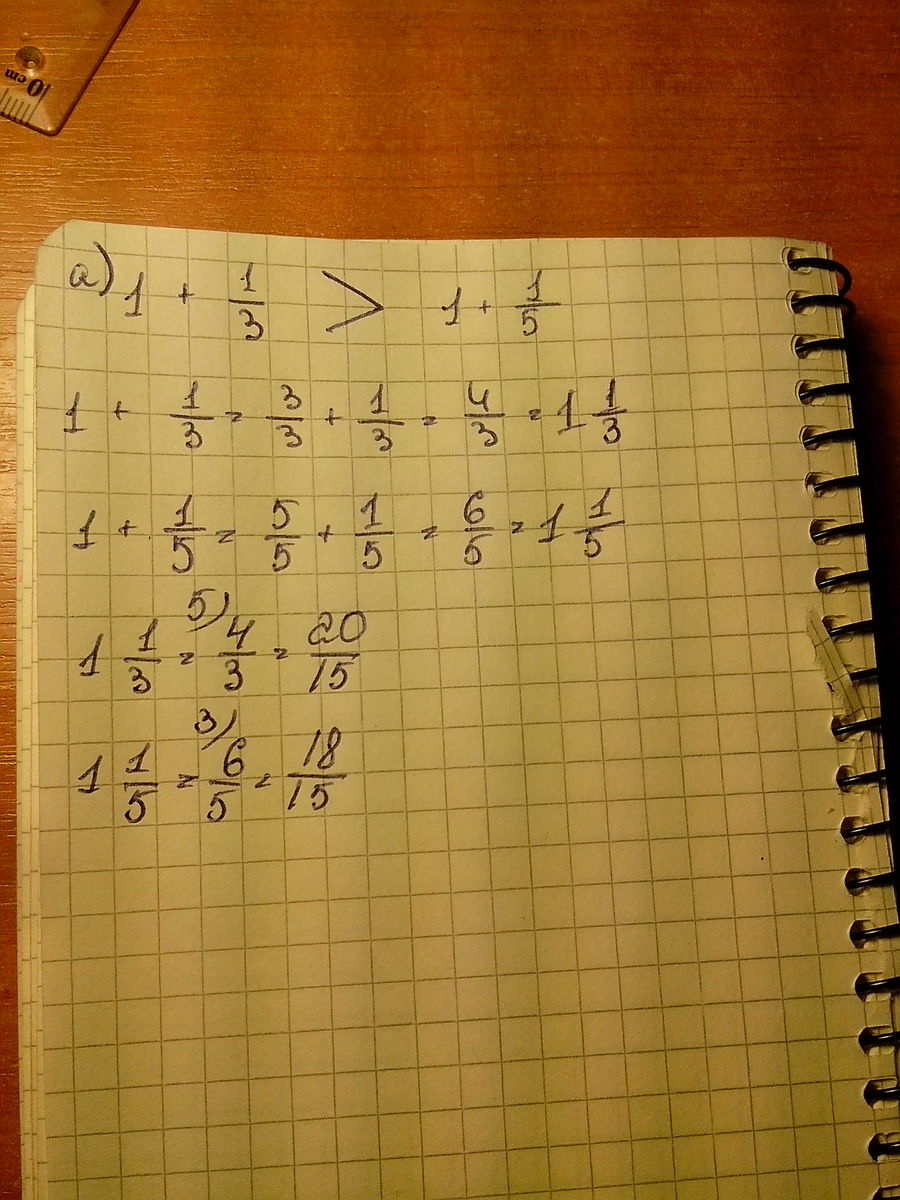 10 cm
a) 1 + 1/3 > 1 + 1/5
1 + 1/3 = 3/3 + 1/3 = 4/3 = 1 1/3
1 + 1/5 = 5/5 + 1/5 = 6/5 = 1 1/5
1 1/3 = 5) 4/3 = 20/15
1 1/5 = 3) 6/5 = 18/15